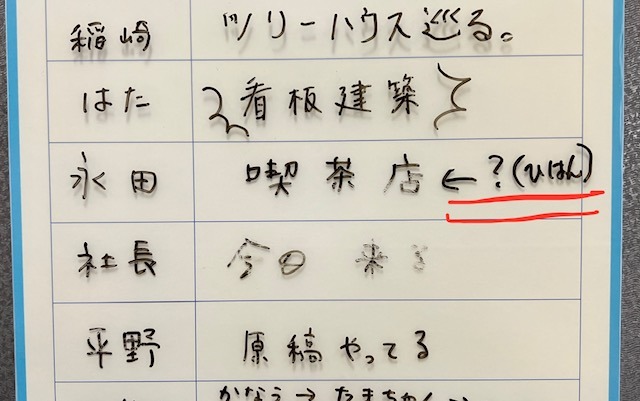 稲崎 ツリーハウス巡る。
はた 看板建築
永田 喫茶店 ← ? (ひはん)
社長 今日 来る
平野 原稿やってる
かなえ → たまちゃん